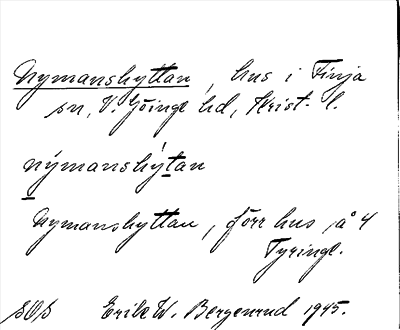 Nymanshyttan, hus i Finja
sn, V. Göinge hd, Krist. l.
nýmanshýtan
Nymanshyttan, förr hus å 4
Tyringe.
SOS Erik W. Bergenrud 1945.